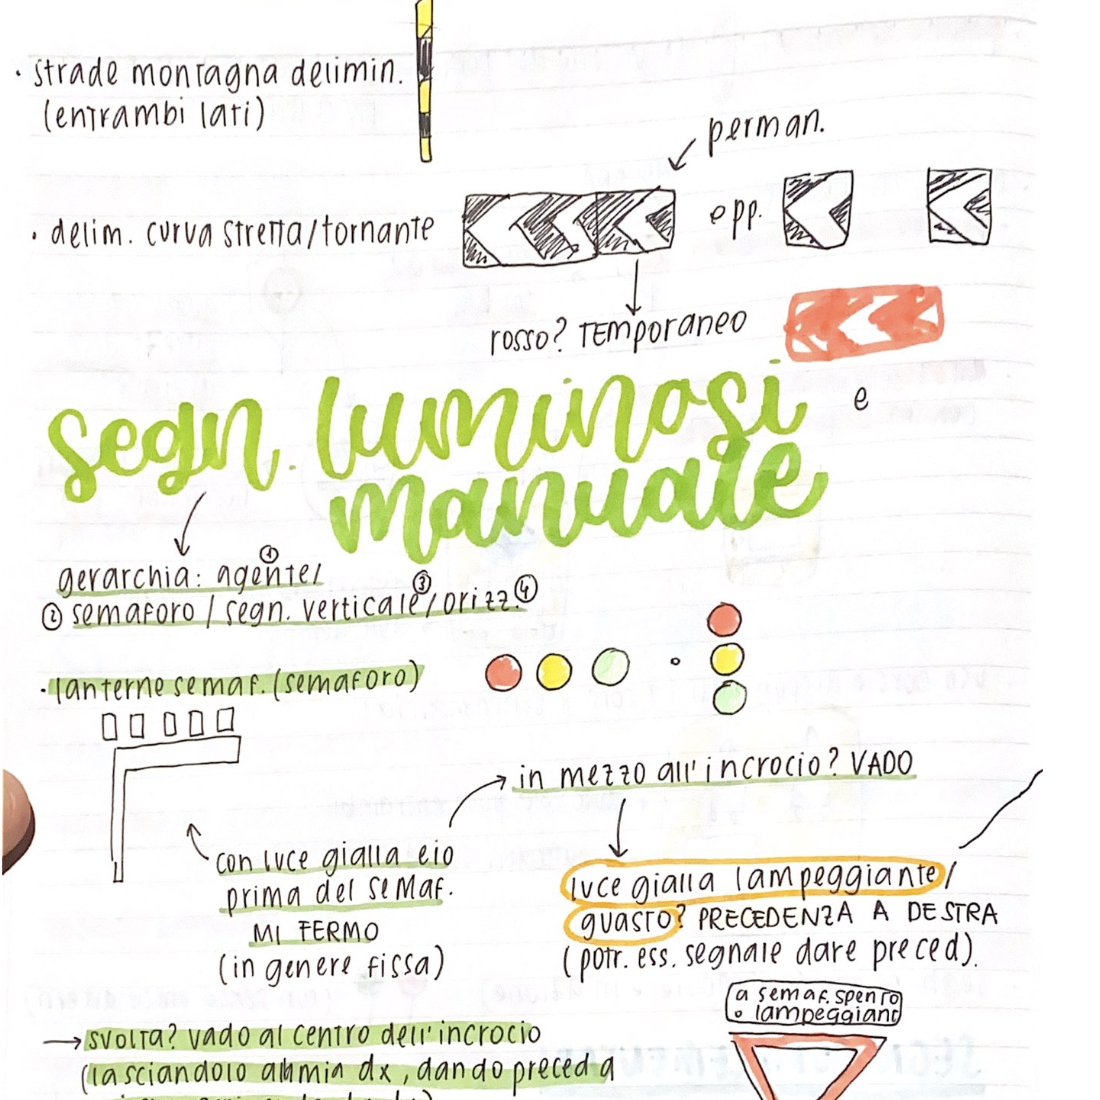 · strade montagna delimin.
(entrambi lati)
perman.
· delim. curva stretta/tornante
epp.
rosso? TEMPORANEO
segn. luminosi e
manuale
gerarchia: agente① /
② semaforo / segn. verticale③/orizz.④
· lanterne semaf. (semaforo)
o
in mezzo all'incrocio? VADO
con luce gialla e io
prima del semaf.
MI FERMO
(in genere fissa)
luce gialla lampeggiante/
guasto? PRECEDENZA A DESTRA
(potr. ess. segnale dare preced).
a semaf. spento
o lampeggiano
→ svolta? vado al centro dell'incrocio
(lasciandolo alla mia dx, dando preced a